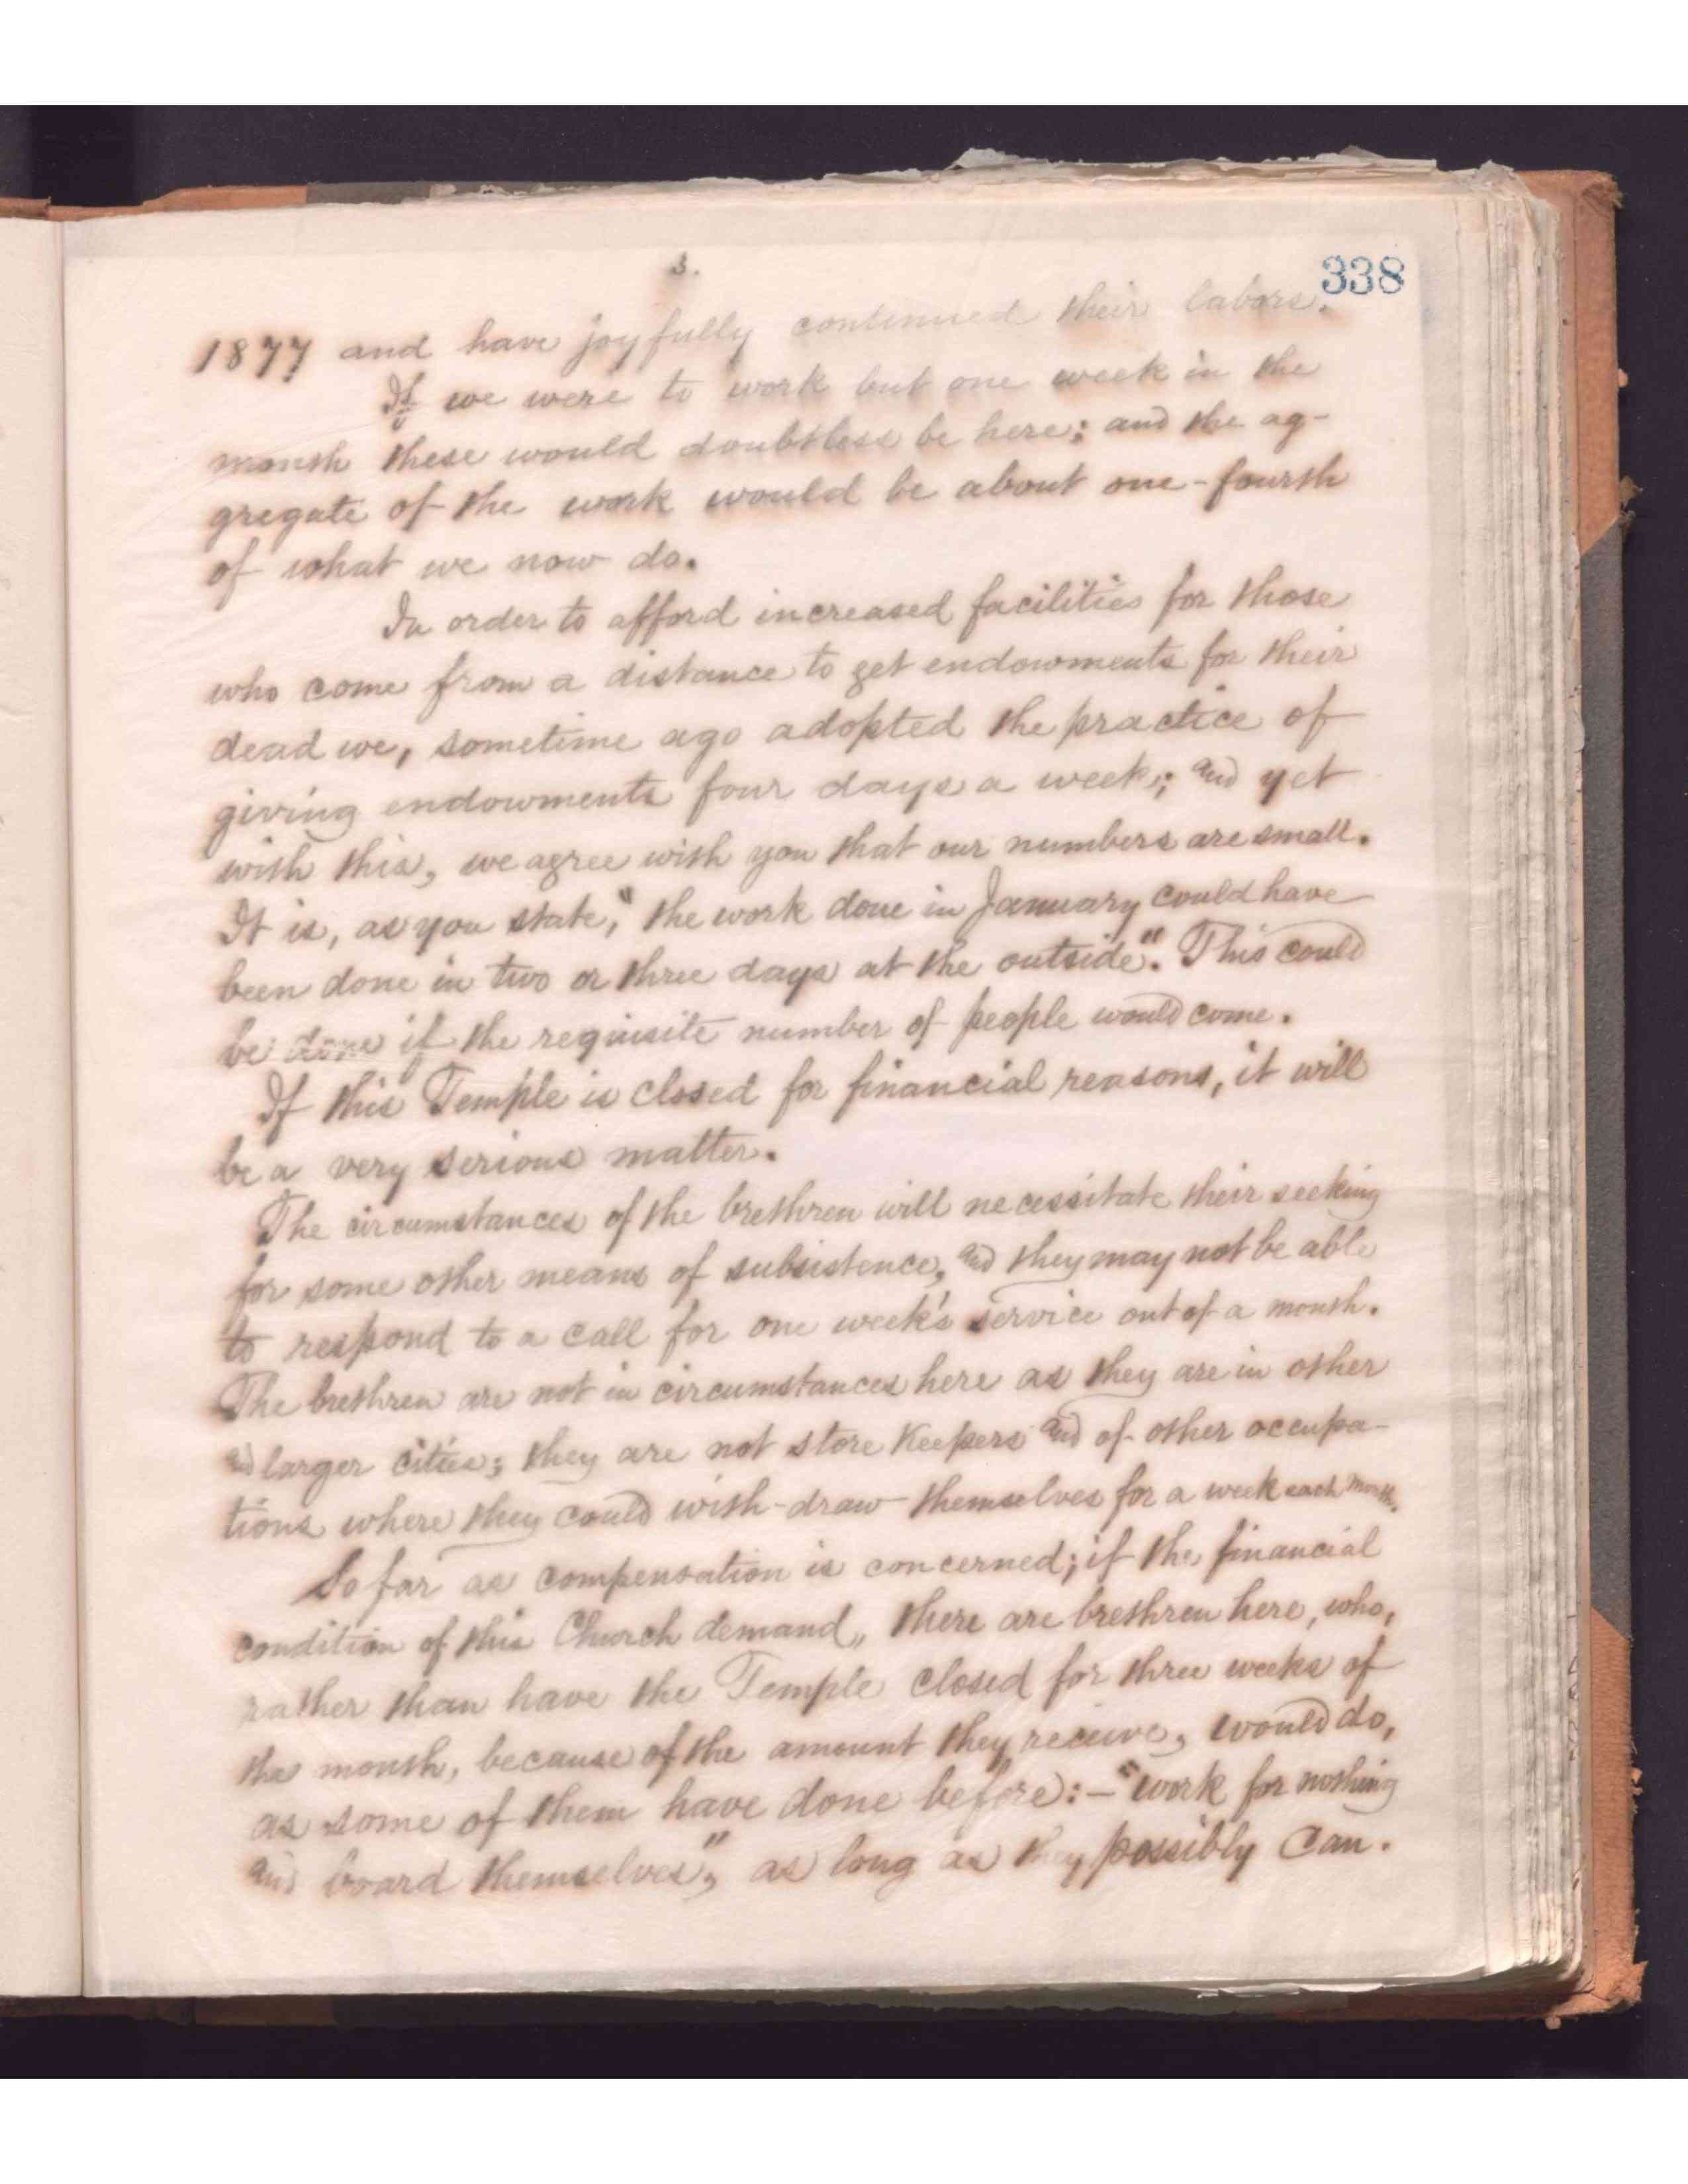 3.
338
1877 and have joyfully continued their labors.
If we were to work but one week in the
month these would doubtless be here; and the ag-
gregate of the work would be about one-fourth
of what we now do.
In order to afford increased facilities for those
who come from a distance to get endowments for their
dead we, sometime ago adopted the practice of
giving endowments four days a week; and yet
with this, we agree with you that our numbers are small.
It is, as you state, "the work done in January could have
been done in two or three days at the outside". This could
be done if the requisite number of people would come.
If this Temple is closed for financial reasons, it will
be a very serious matter.
The circumstances of the brethren will necessitate their seeking
for some other means of subsistence, and they may not be able
to respond to a call for one week's service out of a month.
The brethren are not in circumstances here as they are in other
and larger cities; they are not store keepers and of other occupa-
tions where they could with-draw themselves for a week each month.
So far as compensation is concerned; if the financial
condition of this Church demand, there are brethren here, who,
rather than have the Temple closed for three weeks of
the month, because of the amount they receive, would do,
as some of them have done before:- "work for nothing
and board themselves", as long as they possibly can.